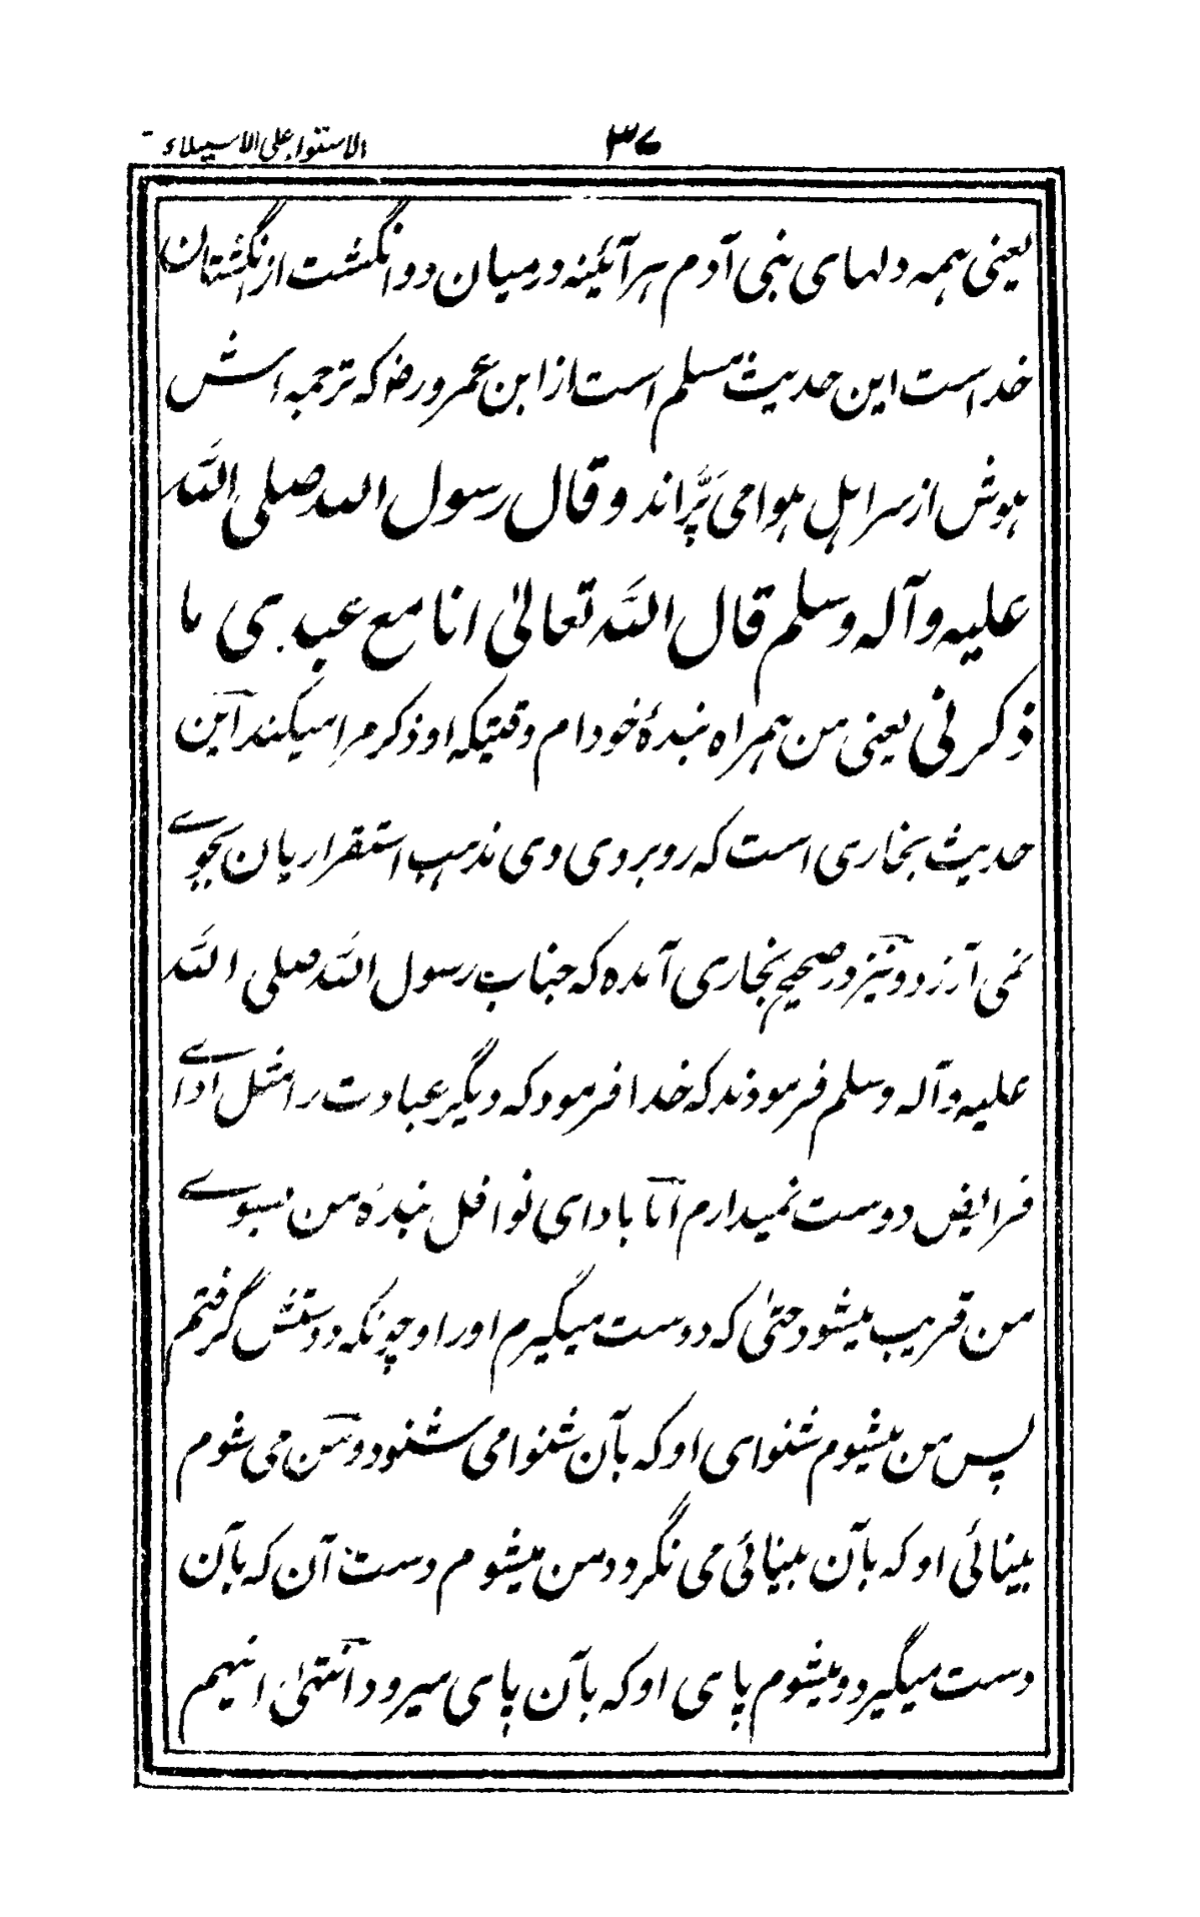 ۳۷ الاستواء علی الاستیلاء
یعنی ہمہ دلہای بنی آدم ہر آئینہ درمیان دو انگشت از انگشتان
خداست این حدیث مسلم است از ابن عمرو رضہ کہ ترجمہ اش
ہوش از سر اہل ہوا می پَرّاند و قال رسول اللہ صلی اللہ
علیہ و آلہ وسلم قال اللہ تعالیٰ انا مع عبدی ما
ذکرنی یعنی من ہمراہ بندۂ خودام وقتیکہ او ذکر مرا میکند این
حدیث بخاری است کہ روبردی وی مذہب استقراریان بجوے
نمی آرزد و نیز در صحیح بخاری آمدہ کہ جناب رسول اللہ صلی اللہ
علیہ و آلہ وسلم فرمودند کہ خدا فرمود کہ دیگر عبادت را مثل اداے
فرایض دوست نمیدارم امّا بادای نوافل بندۂ من بسوے
من قریب میشود حتیٰ کہ دوست میگیرم اورا و چونکہ دوستش گرفتم
پس من میشوم شنوای او کہ بآن شنوا می شنود و من می شوم
بینائی او کہ بآن بینائی می نگرد و من میشوم دست آن کہ بآن
دست میگیرد و میشوم پای او کہ بآن پای میرود انتہیٰ اینہم